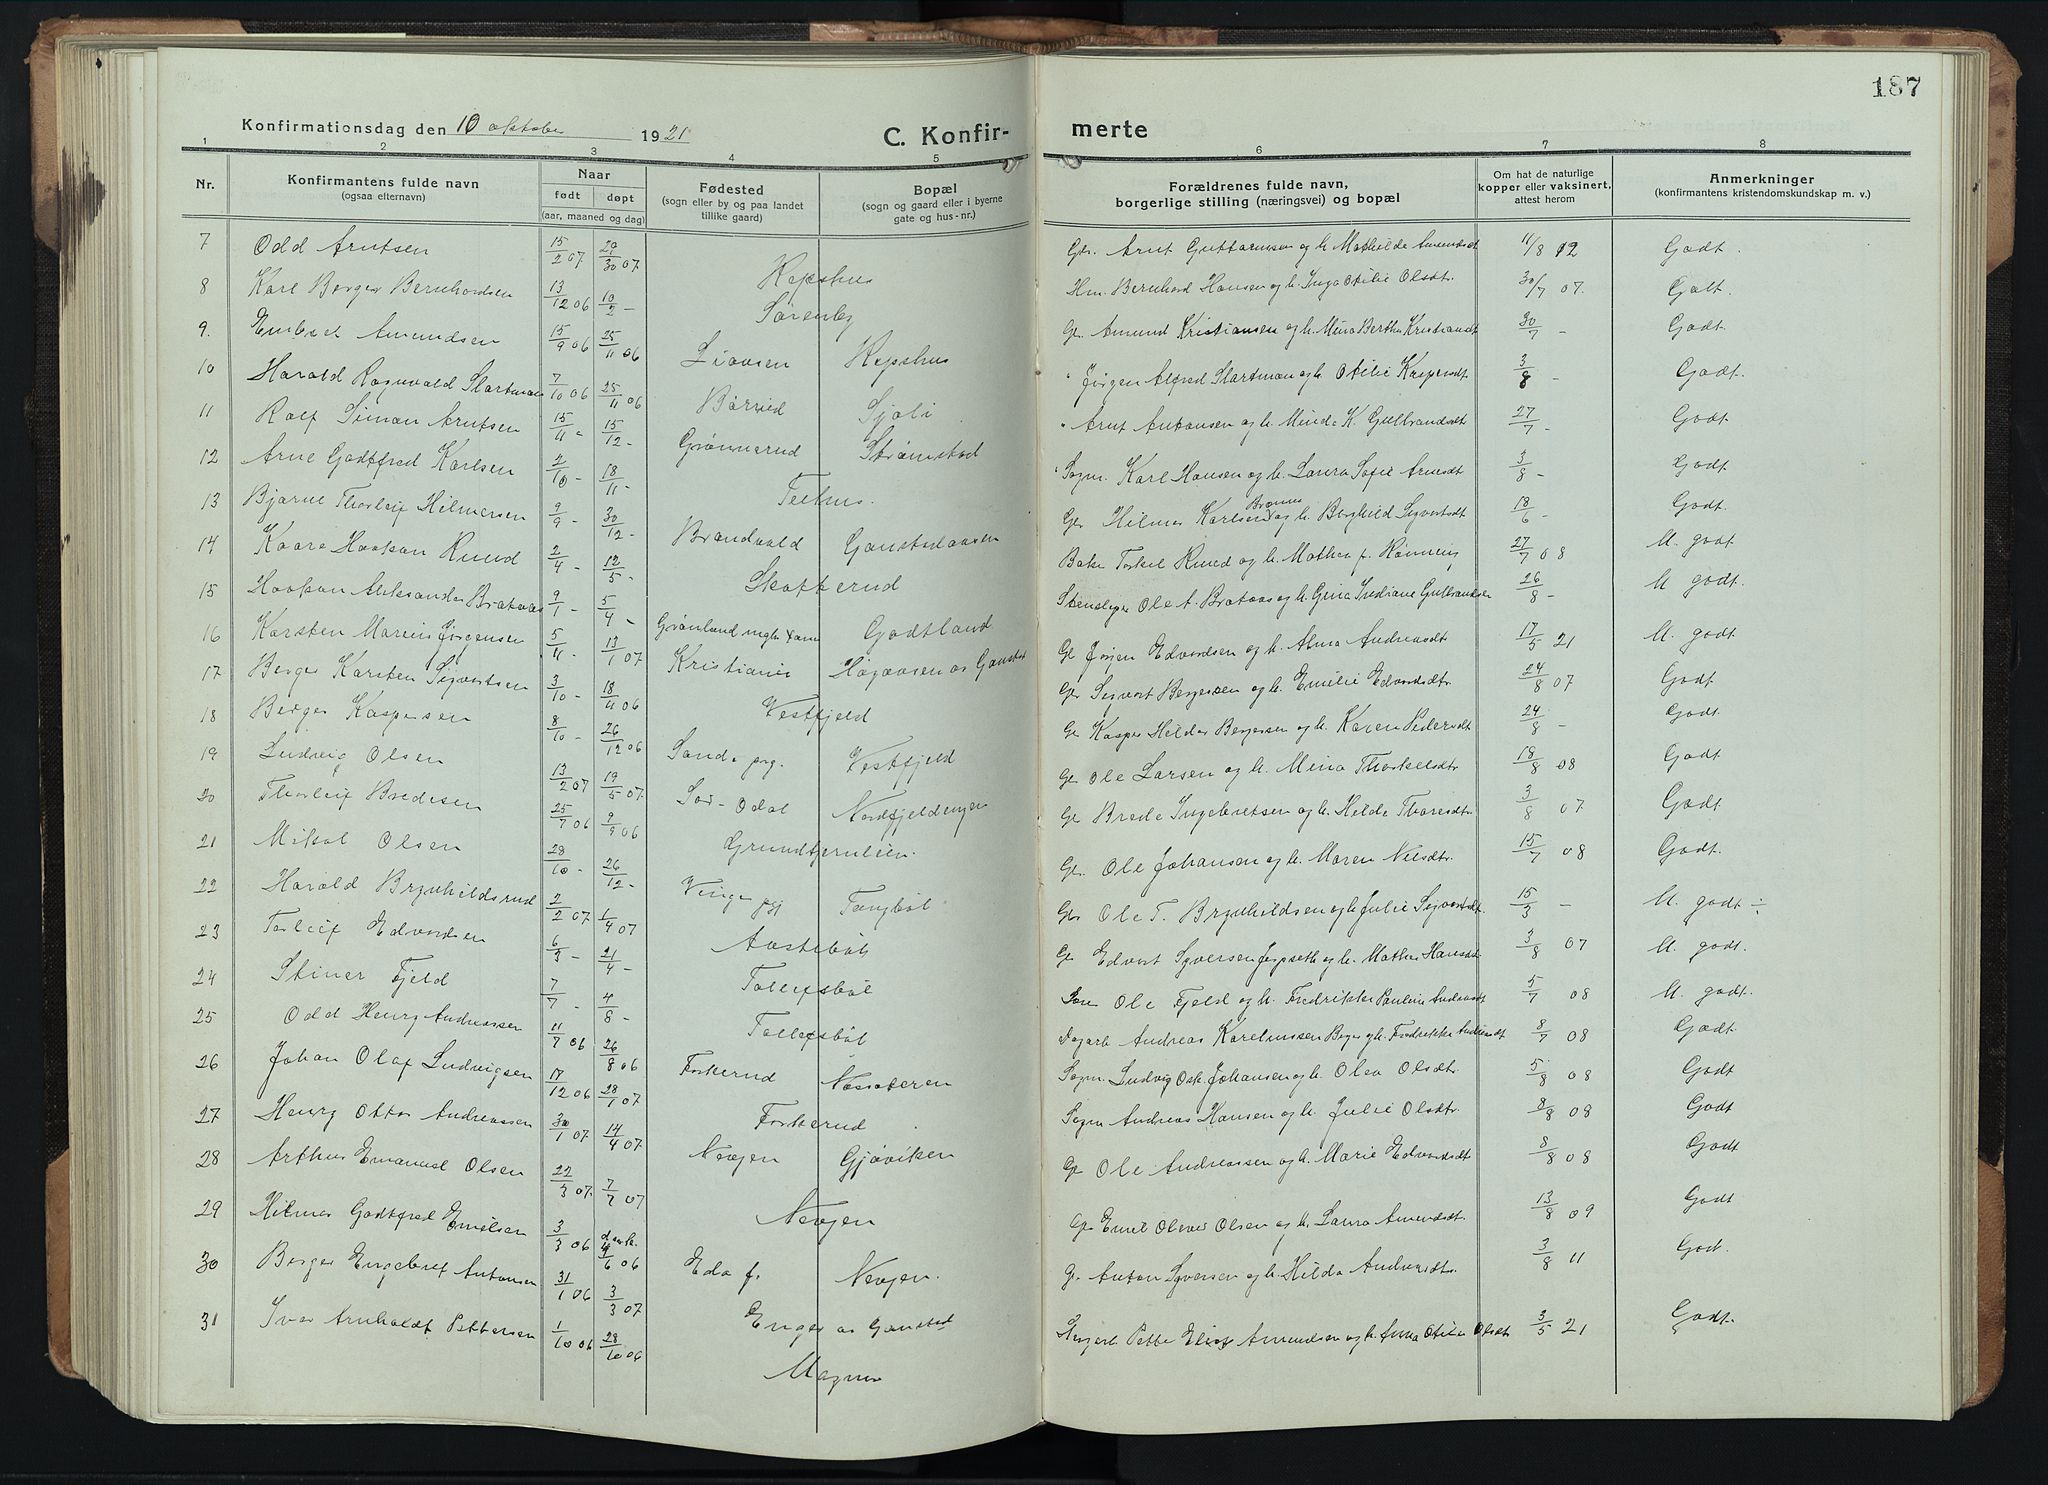 187
Konfirmationsdag den 10 oktober 1921 C. Konfirmerte
1 2 3 4 5 6 7 8
Nr. Konfirmantens fulde navn (ogsaa efternavn) Naar født døpt (aar, maaned og dag) Fødested (sogn eller by og paa landet tillike gaard) Bopæl (sogn og gaard eller i byerne gate og hus-nr.) Forældrenes fulde navn, borgerlige stilling (næringsvei) og bopæl Om hat de naturlige kopper eller vaksinert, attest herom Anmerkninger (konfirmantens kristendomskundskap m. v.)
7 Odd Arntsen 15/2 07 29/30 07 Kepshus Gbr. Arnt Guttormsen og h. Mathilde Amundsdt 11/8 12 Godt.
8 Karl Borger Bernhardsen 13/12 06 10/2 - Sørenby Hm. Bernhard Hansen og h. Inga Otilie Olsdt. 30/7 07. Godt.
9. Embret Amundsen 15/9 06 25/11 06 Liaasen Kepshus Gb. Amund Kristiansen og h. Mina Berthe Kristiansdt 30/7 - Godt
10 Harald Ragnvald Slartman 7/10 06 25/11 06 Børlid Sjøli " Jørgen Alfred Slartman og h. Otilie Kaspersdt 3/8 - Godt.
11 Rolf Simon Arntsen 15/11 - 15/12 - Grønnerud Strømstad " Arnt Antonsen og h. Minda K. Gulbrandsdt 27/7 - Godt
12 Arne Godtfred Karlsen 2/10 - 18/11 - Teehus. Sagm. Karl Hansen og h. Laura Sofie Arnesdt 3/8 - Godt
13 Bjarne Thorleif Hilmersen 9/9 - 30/12 - Brandvold Ganstadaasen Gbr Hilmer Karlsen og h. Borghild Sigvartsdt 18/6 - Godt.
14 Kaare Haakon Ruud 2/4 - 12/5 - Skotterud Bake Torkel Ruud og h. Mathea f. Rønning 27/7 08 M. godt
15 Haakon Aleksander Brataas 9/1 - 5/4 - Grønland Godtland Ole A. Brataas og h. Gina Indiane Gulbrandsen 26/8 - M godt.
16 Karsten Marius Jørgensen 5/11 - 13/1 07 Kristiania Høgaasen av Ganstad Gb Jørgen Edvardsen og h. Alma Andreasdt 17/5 21 M. godt
17 Berger Karsten Sigvartsen 3/10 - 18/11 06 Vestfjeld Gbr Sigvart Bergersen og h. Emilie Edvardsdt. 24/8 07 Godt.
18 Berger Kaspersen 8/10 - 26/12 06 Sande prg. Vestfjeld Gb Kasper Helder Bergersen og h. Karen Pedersdt 24/8 - Godt
19 Ludvig Olsen 13/2 07 19/5 07. Sør-Odal Nordfjeldengen Gb Ole Larsen og h. Mina Thorkelsdtr 18/8 08 Godt
20 Thorleif Bredesen 25/7 06 9/9 06 Grundtjernlien. Gb Brede Ingebretsen og h. Helde Thoresdtr 3/8 07 Godt
21 Mikal Olsen 28/10 - 26/12 - Vinger pgj Tangbøl Gb. Ole Johansen og h. Maren Nilsdtr. 15/7 08 Godt.
22 Harald Brynhildsrud 2/2 07 1/4 07 Aastebøl Gbr Ole T. Brynhildsen og h. Julie Sigvartsdt. 15/3 - M. godt ÷
23 Torleif Edvardsen 6/3 - 21/4 - Tollefsbøl Gb Edvart Syversen Jerpseth og h. Mathea Hansdt 3/8 07 M. godt.
24 Steiner Fjeld 7/7 - 4/8 - Tollefsbøl Ole Fjeld og h. Fredrikke Pauline Andreasdt 5/7 08 M. godt.
25 Odd Henry Andreassen 11/7 06 26/8 06 Forkerud Nassateren Dagarb Andreas Karelinssen Berger og h. Fredrikke Andreasdt 8/7 08 Godt
26 Johan Olaf Ludvigsen 17/12 06 28/1 07 Forkerud Sagm. Ludvig Osk. Johansen og h. Olea Olsdt. 5/8 08 Godt
27 Henry Otto Andreassen 30/1 07. 14/4 07 Nevjen Gjøviken Sagm Andreas Hansen og h. Julie Olsdtr. 8/8 08 Godt
28 Arthur Emanuel Olsen 22/3 07. 7/7 07 Nevjen Gb Ole Andreassen og h. Marie Edvardsdt 8/8 08 Godt
29 Hilmar Godtfred Emilsen 3/3 06 4/6 06 Eda f. Nevjen. Gb Emil Oliver Olsen og h. Laura Amundsdt. 13/8 09 Godt
30 Borger Engebret Antonsen 31/1 06 3/3 07 Enger av Ganstad Gb. Anton Syversen og h. Hilda Andersdtr. 3/8 11 God.
31 Iver Arnholdt Pettersen 1/10 06 28/10 06 Magnor Petter Amundsen og h. Anna Otilie Olsdt 3/5 21 Godt.